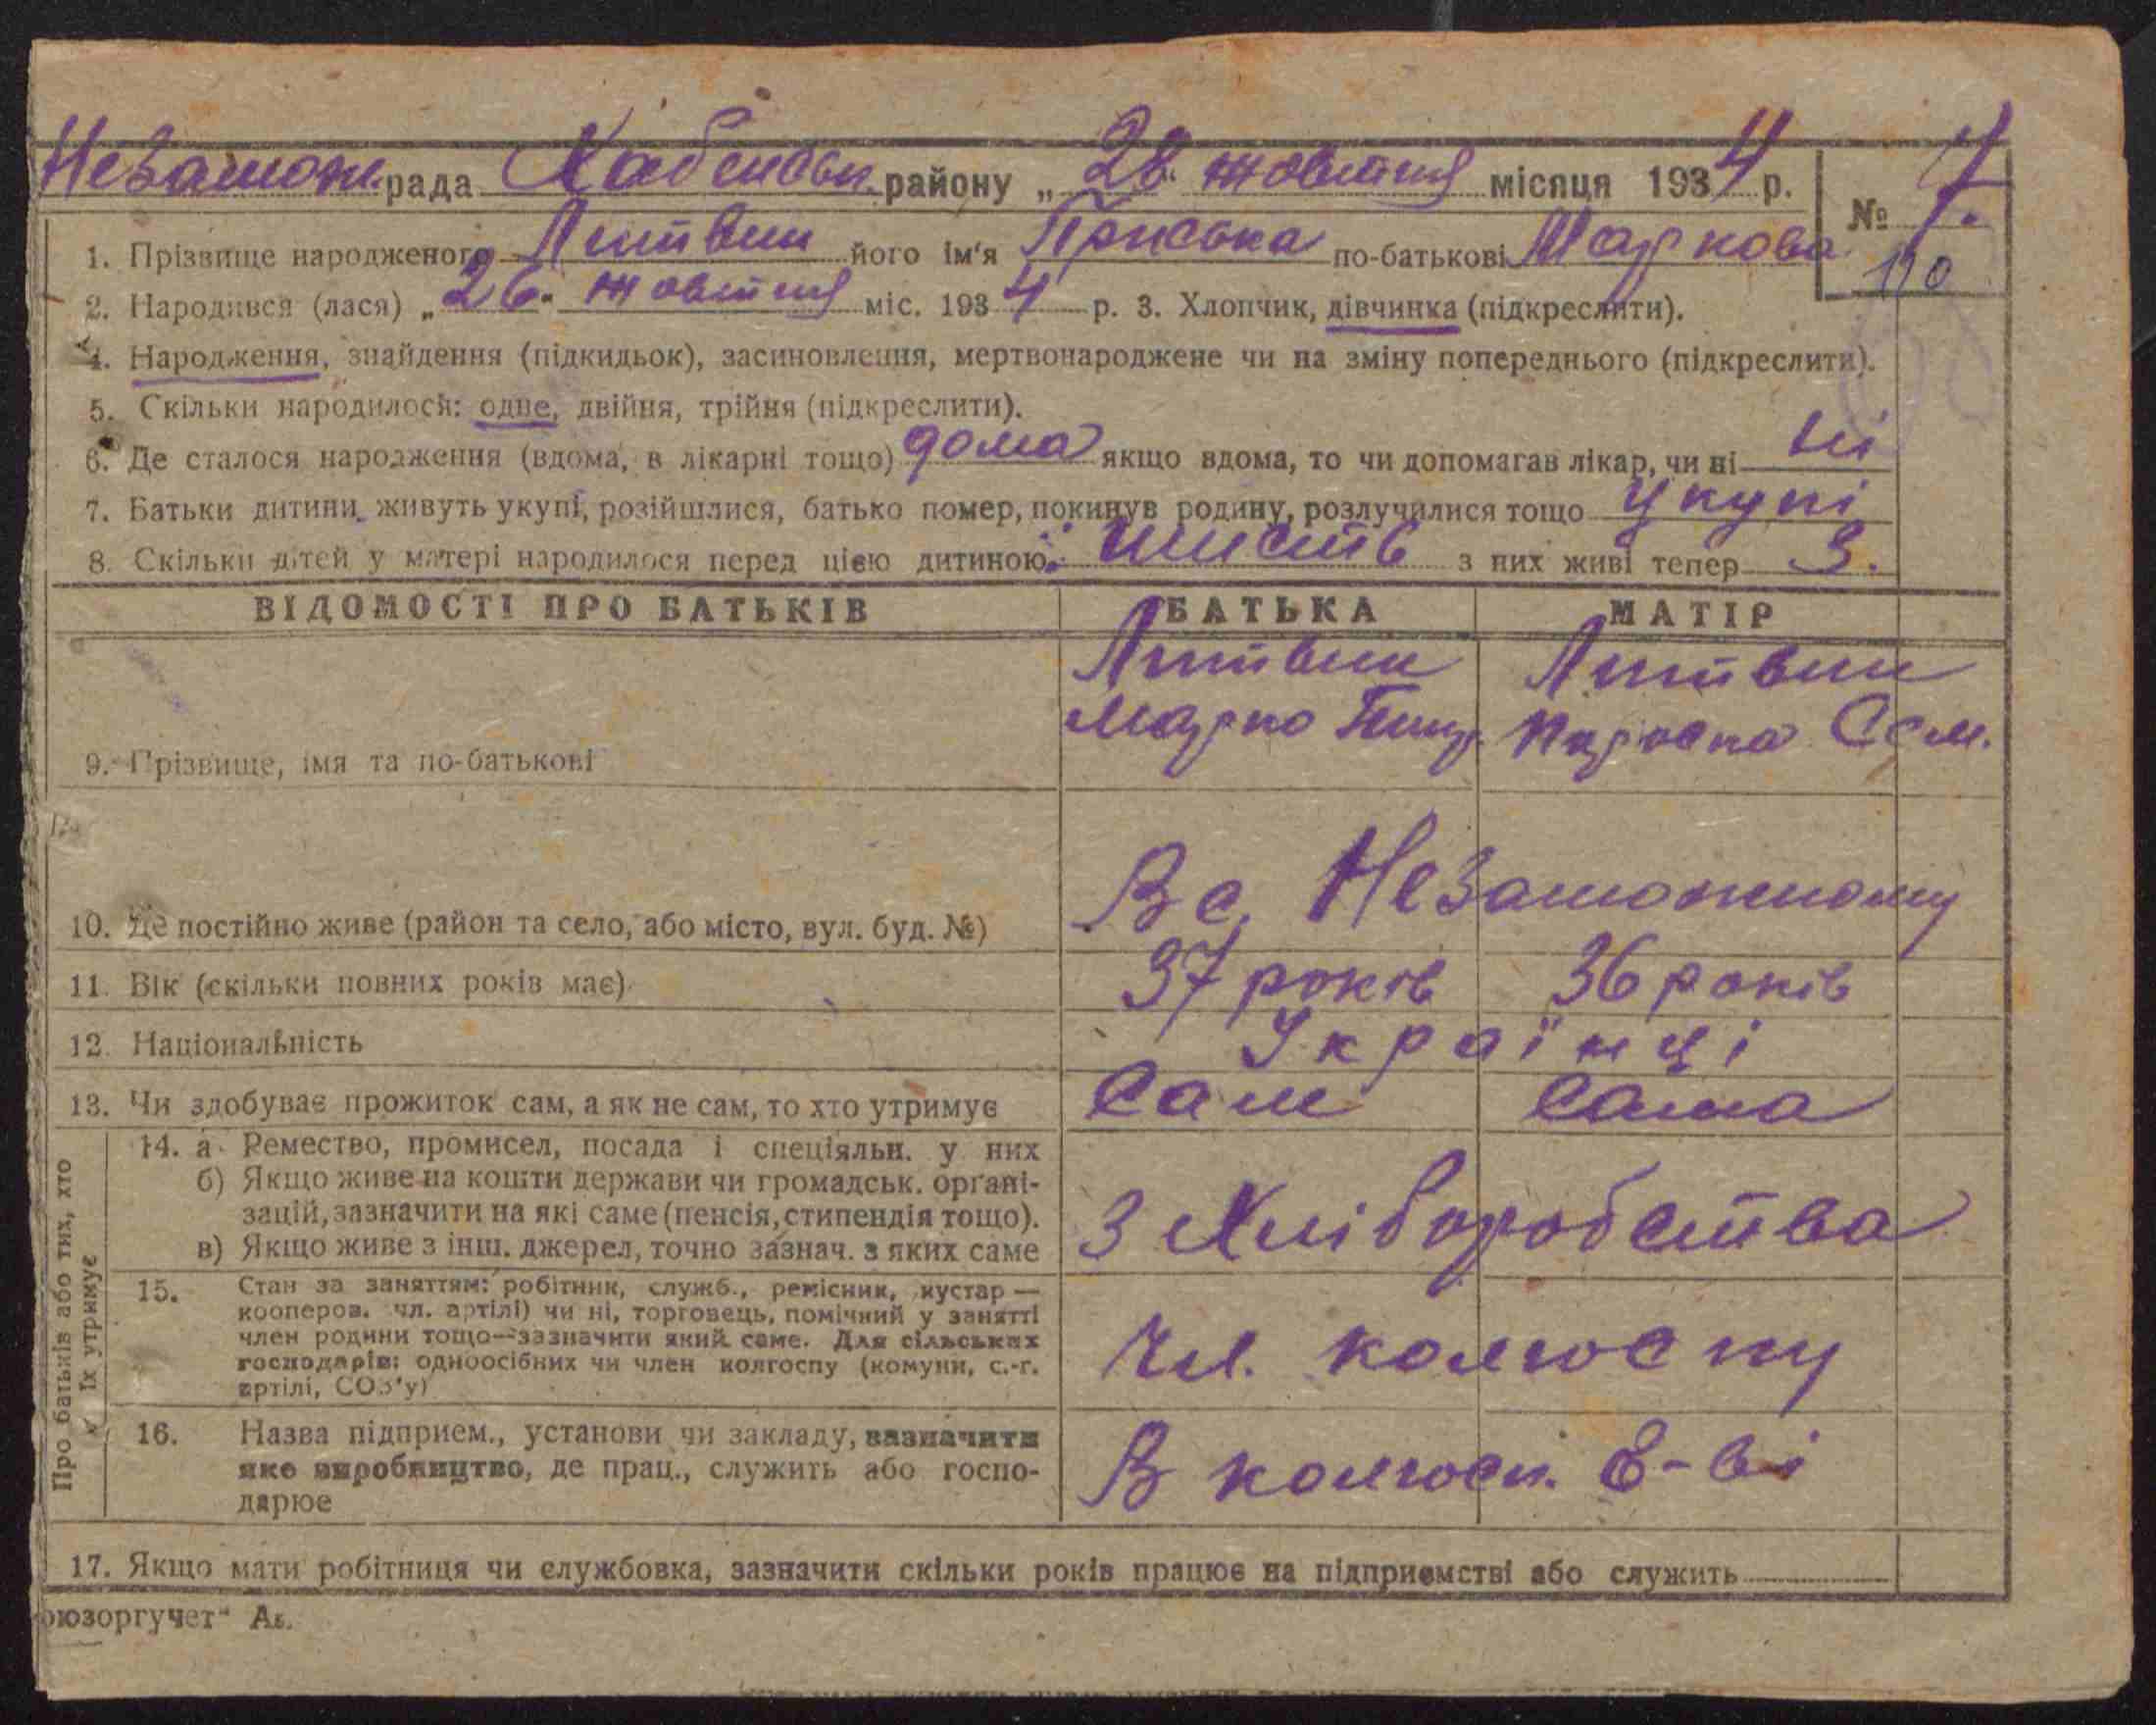 Незамож. рада Хабенськ. району „ 28 " жовтня місяця 1934 р. № 7
1. Прізвище народженого Литвин його ім'я Приська по-батькові Маркова 110
2. Народився (лася) „ 26 " жовтня міс. 1934 р. 3. Хлопчик, дівчинка (підкреслити).
4. Народження, знайдення (підкидьок), засиновлення, мертвонароджене чи на зміну попереднього (підкреслити).
5. Скільки народилося: одне, двійня, трійня (підкреслити).
6. Де сталося народження (вдома, в лікарні тощо) дома якщо вдома, то чи допомагав лікар, чи ні ні
7. Батьки дитини живуть укупі, розійшлися, батько помер, покинув родину, розлучилися тощо Укупі
8. Скільки дітей у матері народилося перед цією дитиною: шисть з них живі тепер 3.
ВІДОМОСТІ ПРО БАТЬКІВ БАТЬКА МАТІР
Литвин Литвин
9. Прізвище, імя та по-батькові Марко
10. Де постійно живе (район та село, або місто, вул. буд. №) В с. Незаможному
11. Вік (скільки повних років має) 37 років 36 років
12. Національність Українці
13. Чи здобуває прожиток сам, а як не сам, то хто утримує Сам Сама
Про батьків або тих, хто їх утримує
14. а Ремество, промисел, посада і спеціяльн. у них
б) Якщо живе на кошти держави чи громадськ. органі-
зацій, зазначити на які саме (пенсія, стипендія тощо). З Хліборобства
в) Якщо живе з інш. джерел, точно зазнач. з яких саме
15. Стан за заняттям: робітник, служб., ремісник, кустар —
кооперов. чл. артілі) чи ні, торговець, помічний у занятті
член родини тощо—зазначити який саме. Для сільських
господарів: одноосібних чи член колгоспу (комуни, с.-г.
артілі, СОЗ'у) Чл. колгоспу
16. Назва підприєм., установи чи закладу, зазначити
яке виробництво, де прац., служить або госпо- В колгосп.
дарює
17. Якщо мати робітниця чи службовка, зазначити скільки років працює на підприємстві або служить
оюзоргучет"